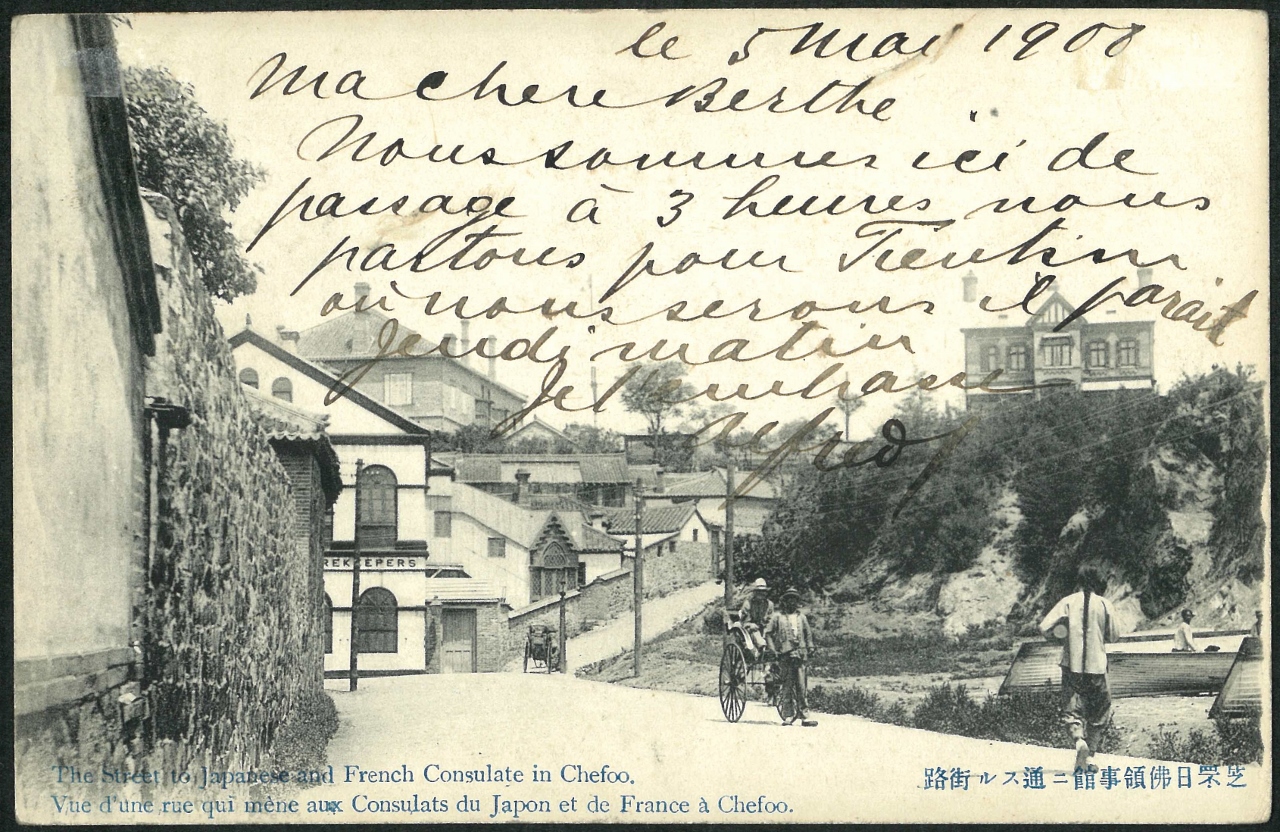 le 5 Mai 1908
Ma chere Berthe
Nous sommes ici de
passage à 3 heures nous
partons pour Tientsin
où nous serons il parait
Jeudi matin
Je t'embrasse
REKEEPERS
The Street to Japanese and French Consulate in Chefoo.
Vue d'une rue qui mène aux Consulats du Japon et de France à Chefoo.
路街ルス通ニ館事領佛日罘芝